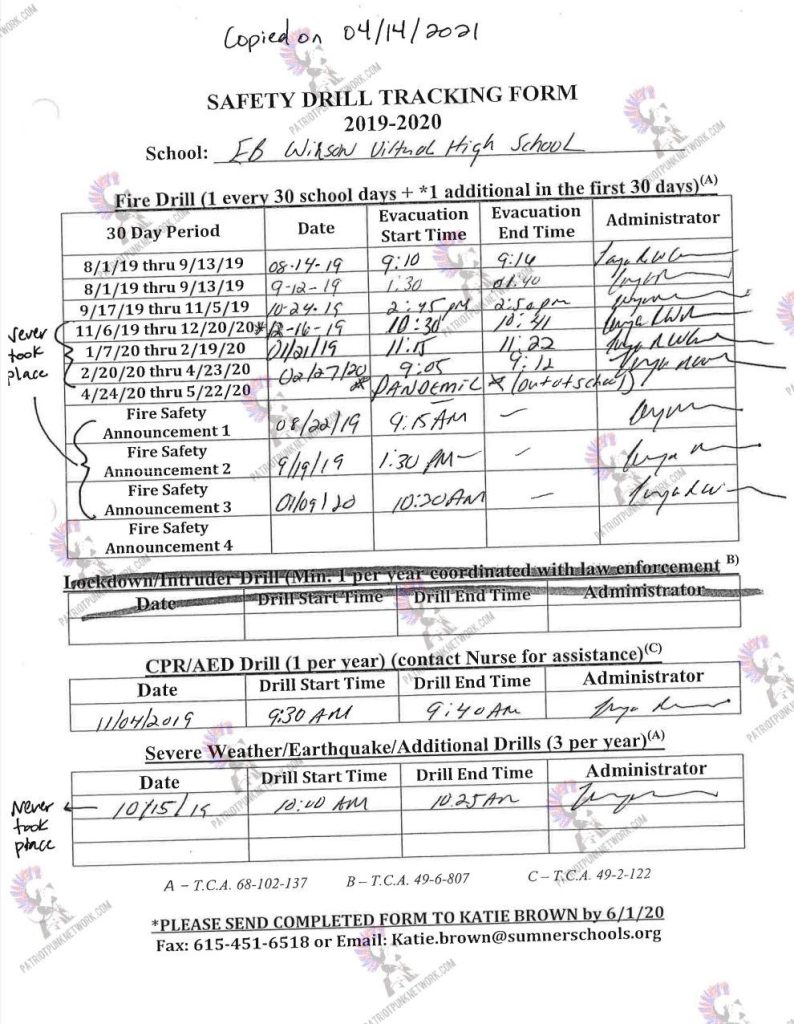 Copied on 04/14/2021
SAFETY DRILL TRACKING FORM
2019-2020
School: EB Wilson Virtual High School
Fire Drill (1 every 30 school days + *1 additional in the first 30 days)(A)
30 Day Period Date Evacuation Start Time Evacuation End Time Administrator
8/1/19 thru 9/13/19 08-14-19 9:10 9:16
8/1/19 thru 9/13/19 9-12-19 1:30 01:40
9/17/19 thru 11/5/19 10-24-19 2:45 pm 2:50 pm
11/6/19 thru 12/20/20 * 12-16-19 10:30 10:41
1/7/20 thru 2/19/20 01/21/19 11:15 11:22
2/20/20 thru 4/23/20 02/27/20 9:05 9:12
4/24/20 thru 5/22/20 * PANDEMIC * (out of school)
Never took place
Fire Safety Announcement 1 08/22/19 9:15 AM —
Fire Safety Announcement 2 9/19/19 1:30 PM —
Fire Safety Announcement 3 01/09/20 10:20 AM —
Fire Safety Announcement 4
Lockdown/Intruder Drill (Min. 1 per year coordinated with law enforcement B)
Date Drill Start Time Drill End Time Administrator
CPR/AED Drill (1 per year) (contact Nurse for assistance)(C)
Date Drill Start Time Drill End Time Administrator
11/04/2019 9:30 AM 9:40 AM
Severe Weather/Earthquake/Additional Drills (3 per year)(A)
Date Drill Start Time Drill End Time Administrator
Never took place
10/15/19 10:00 AM 10:25 AM
A – T.C.A. 68-102-137 B – T.C.A. 49-6-807 C – T.C.A. 49-2-122
*PLEASE SEND COMPLETED FORM TO KATIE BROWN by 6/1/20
Fax: 615-451-6518 or Email: Katie.brown@sumnerschools.org
PATRIOTPUNKNETWORK.COM